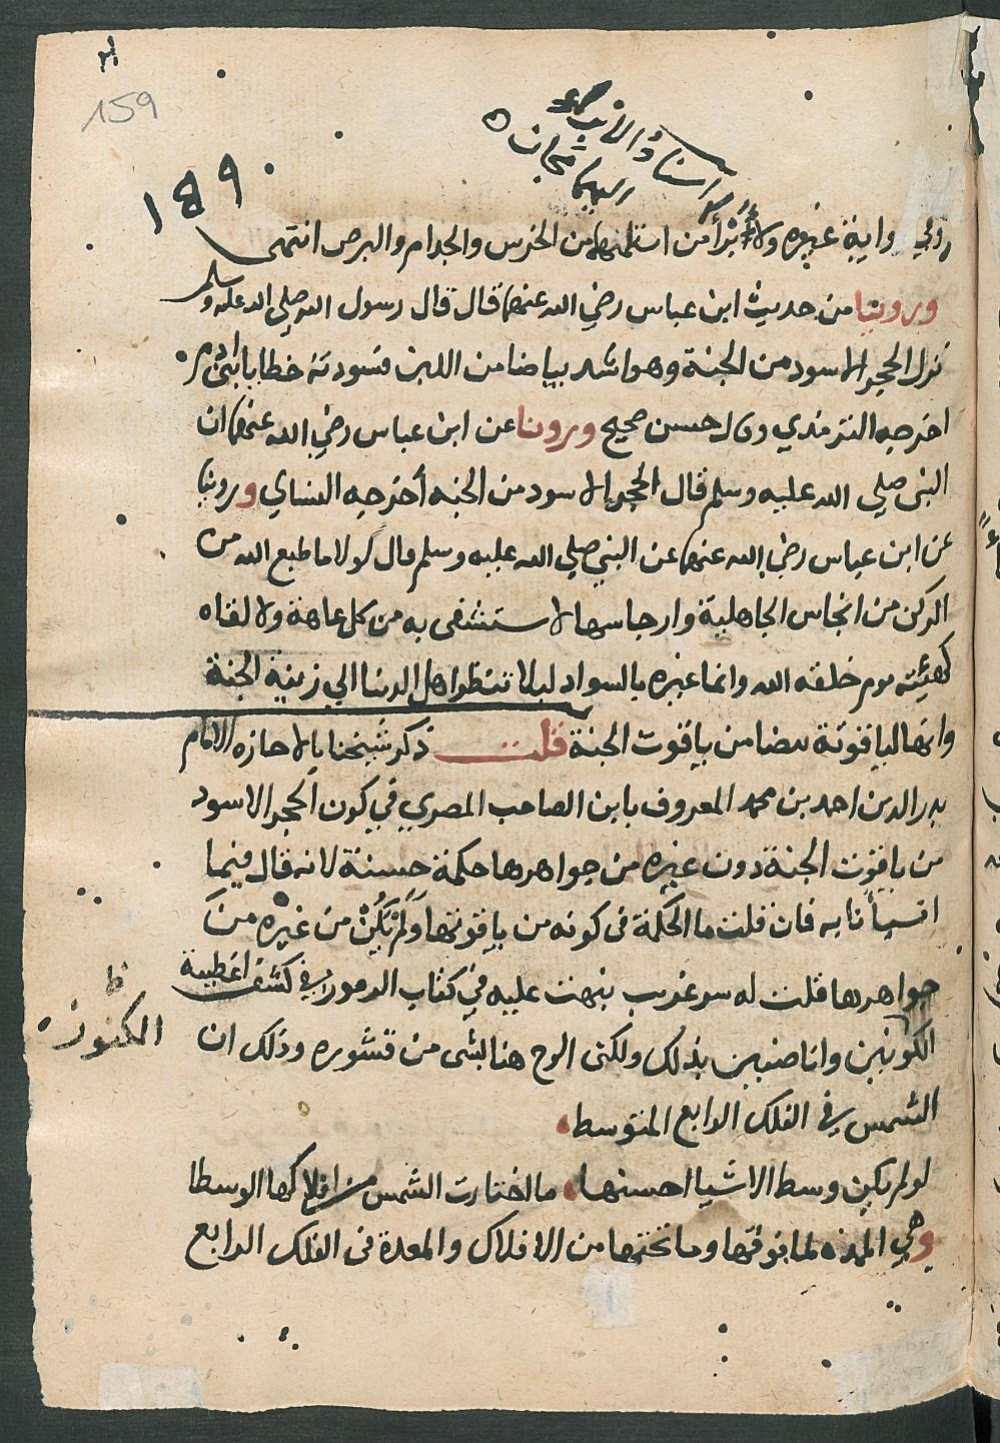 159
١٨٩
وفي رواية غيره ولا يبرأ من استلمها من الخرس والجذام والبرص انتهى
وروينا من حديث ابن عباس رضي الله عنهما قال قال رسول الله صلى الله عليه وسلم
نزل الحجر الاسود من الجنة وهو اشد بياضا من اللبن فسودته خطايا بني ادم
اخرجه الترمذي وقال حسن صحيح وروينا عن ابن عباس رضي الله عنهما ان
النبي صلي الله عليه وسلم قال الحجر الاسود من الجنه أخرجه النساي وروينا
عن ابن عباس رضي الله عنهما عن النبي صلي الله عليه وسلم قال لولا ما طبع الله من
الركن من انجاس الجاهلية وارجاسها لاستشفى به من كل عاهة ولالقاه
كهيئته يوم خلقه الله وانما غيره بالسواد ليلا تنظر اهل الدنيا الي زينة الجنة
وانها لياقوتة بيضا من ياقوت الجنة قلت ذكر شيخنا بالاجازه الامام
بدر الدين احمد بن محمد المعروف بابن الصاحب المصري في كون الحجر الاسود
من ياقوت الجنة دون غيره من جواهرها حكمة حسنة لانه قال فيما
انبأنا به فان قلت ما الحكمة فى كونه من ياقوتها ولم يكن من غيره من
جواهرها قلت له سر غريب نبهت عليه في كتاب الرموز في كشف اغطية
الكنوز
الكونين وانا ضنين بذلك ولكنى الوح هنا بشى من قشوره وذلك ان
الشمس في الفلك الرابع المتوسط
لو لم يكن وسط الاشيا احسنها ما اختارت الشمس من افلاكها الوسطا
وهي الممدة لما فوقها وما تحتها من الافلاك والمعدة فى الفلك الرابع